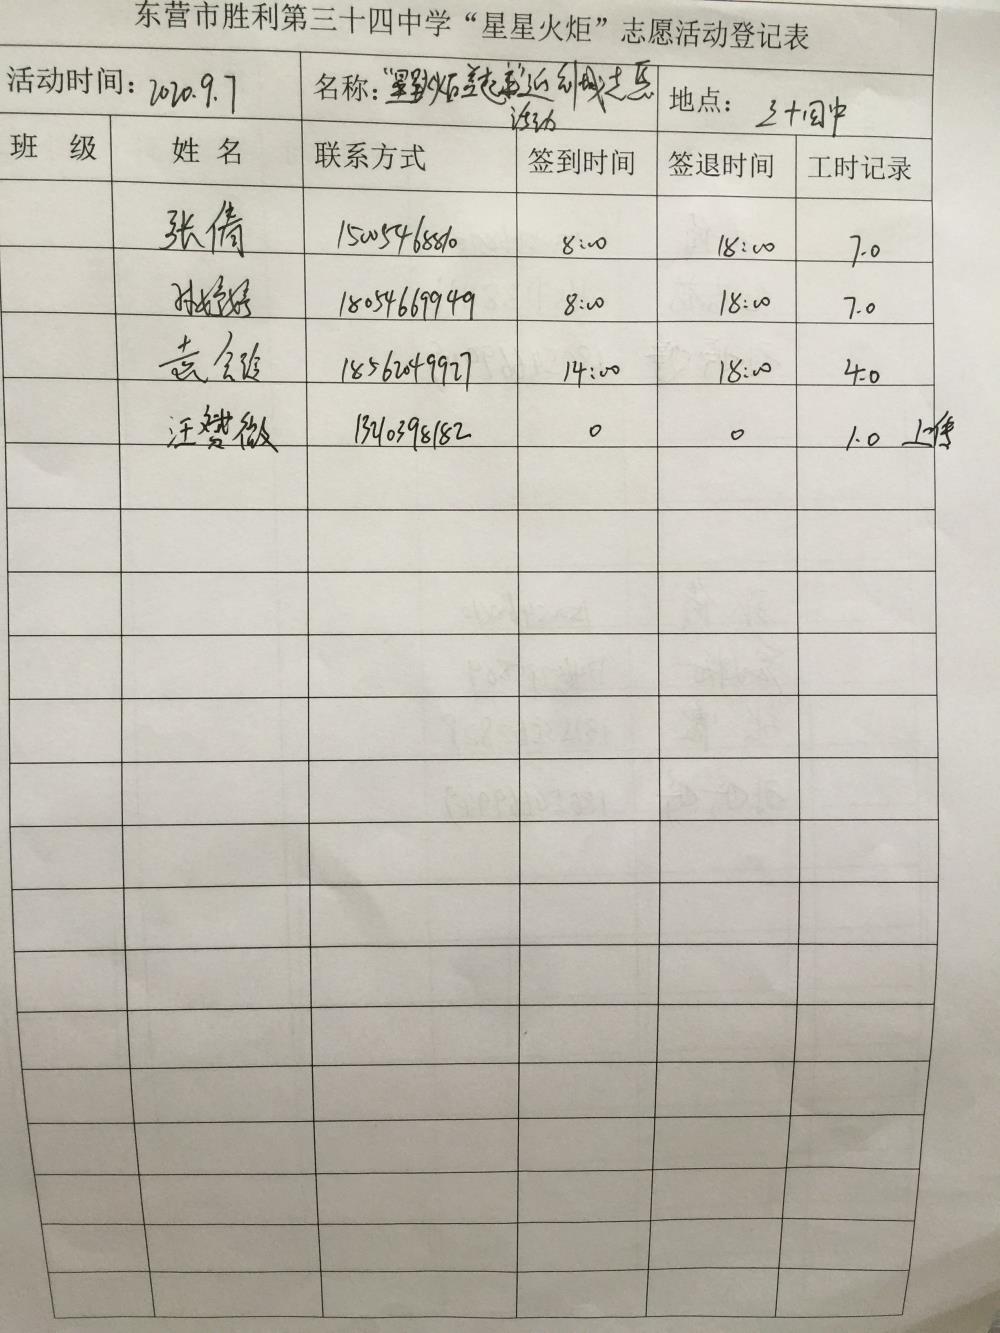 东营市胜利第三十四中学“星星火炬”志愿活动登记表
活动时间：2020.9.7 名称： 志愿 地点：三十四中
活动
班 级 姓 名 联系方式 签到时间 签退时间 工时记录
张倩 15005468810 8:00 18:00 7.0
孙婷婷 18054669949 8:00 18:00 7.0
袁会玲 18562049927 14:00 18:00 4.0
汪赞薇 13210398182 0 0 1.0 上传